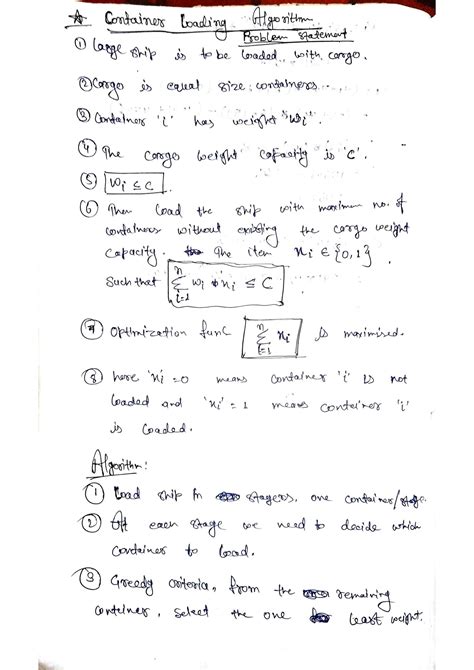 ☆ Container Loading Algorithm
Problem statement
① Large ship is to be loaded with cargo.
② Cargo is equal size containers
③ Container 'i' has weight "wi".
④ The cargo weight capacity is 'C'.
⑤ wi ≤ C
⑥ Then load the ship with maximum no. of
containers without the cargo weight
capacity. The item xi ∈ {0,1}
Such that n∑i=1 wi xi ≤ C
⑦ Optimization func n∑i=1 xi is maximised.
⑧ here 'xi = 0 means container 'i' is not
loaded and 'xi' = 1 means container 'i'
is loaded.
Algorithm:
① Load ship in stagers, one container/stage.
② At each stage we need to decide which
container to load.
③ Greedy criteria, from the remaining
container, select the one least weight.